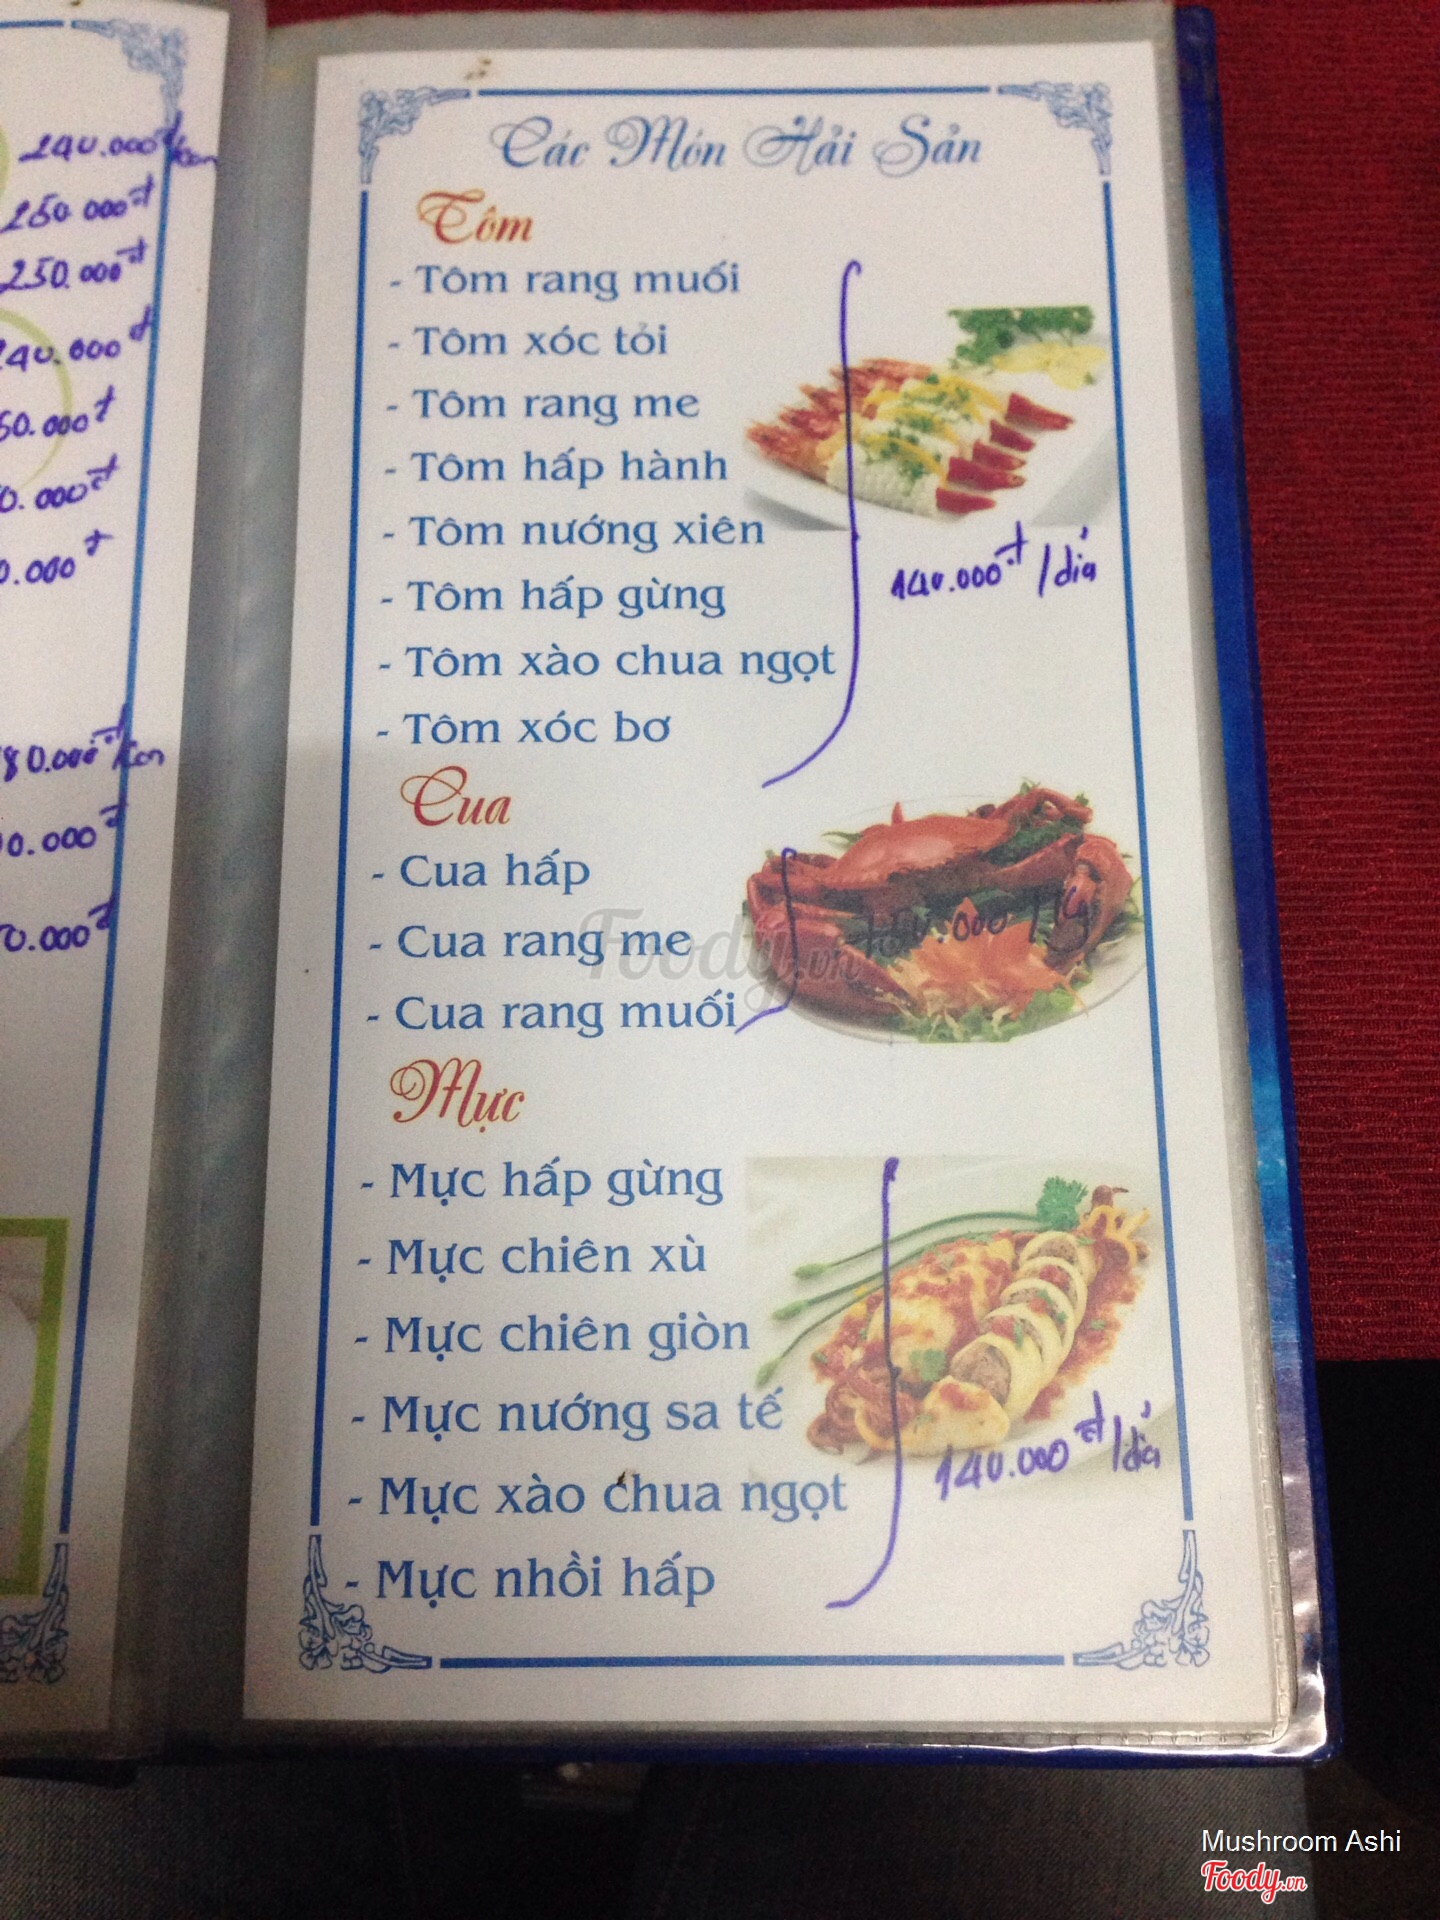 240.000đ/con
260.000đ
250.000đ
240.000đ
50.000đ
0.000đ
0.000đ
80.000đ/con
0.000đ
0.000đ
Các Món Hải Sản
Tôm
- Tôm rang muối
- Tôm xóc tỏi
- Tôm rang me
- Tôm hấp hành
- Tôm nướng xiên
- Tôm hấp gừng
- Tôm xào chua ngọt
- Tôm xóc bơ
140.000đ/dĩa
Cua
- Cua hấp
- Cua rang me
- Cua rang muối
Foody.vn
Mực
- Mực hấp gừng
- Mực chiên xù
- Mực chiên giòn
- Mực nướng sa tế
- Mực xào chua ngọt
- Mực nhồi hấp
140.000đ/dĩa
Mushroom Ashi
Foody.vn